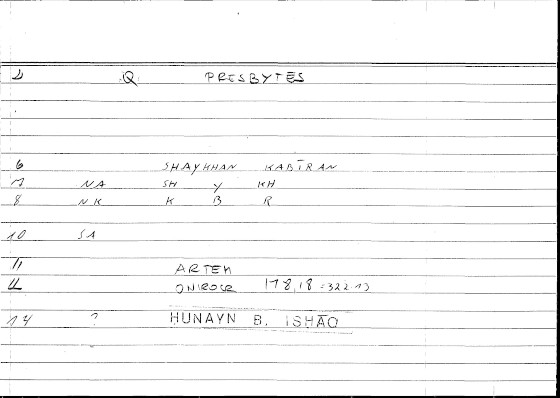 2 Q PRESBYTES
6 SHAYKHAN KABĪRAN
7 NA SH Y KH
8 NK K B R
10 SA
11 ARTEM
12 ONIROCR 178,18 = 322 13
14 ? HUNAYN B. ISHĀQ